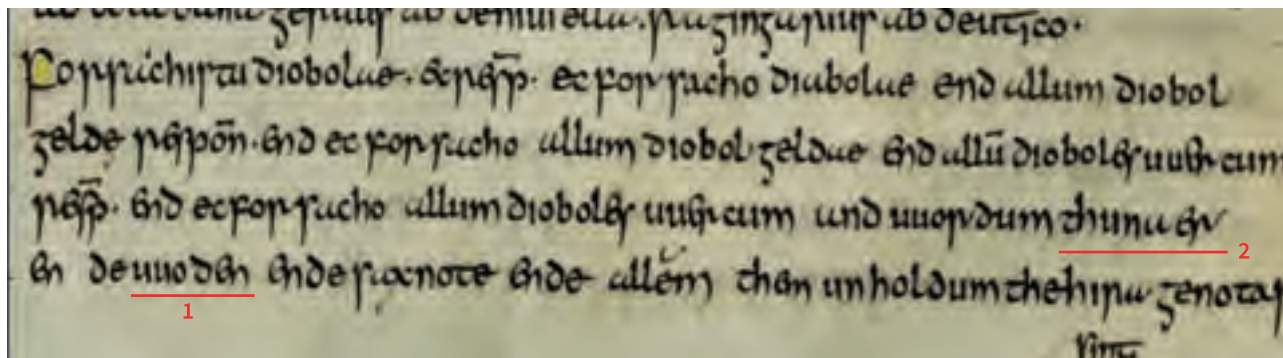 Forsachistu diobolae · & resp̄ · ec forsacho diabolae end allum diobol
gelde respoñ · end ec forsacho allum diobol geldae end allū dioboles uuercum
resp̄ · end ec forsacho allum dioboles uuercum and uuordum thuna er
en de uuoden ende saxnote ende allem them unholdum thehira genotas
1
2